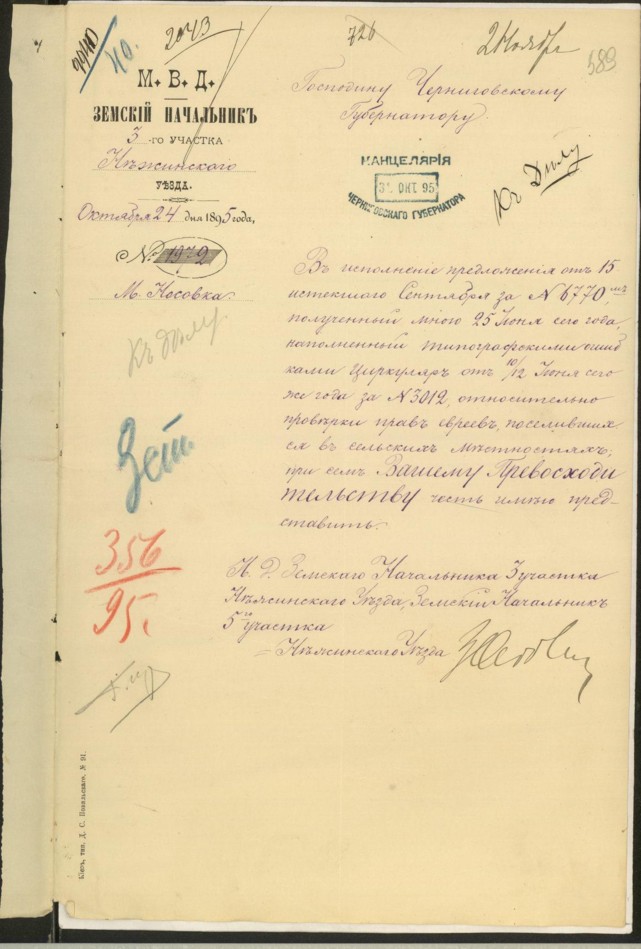 2043
726
2 Ноября
589
40.
М. В. Д.
ЗЕМСКІЙ НАЧАЛЬНИКЪ
3 -го УЧАСТКА
Нѣжинскаго
УѢЗДА.
Октября 24 дня 1895 года,
№ 1972
М. Носовка.
Къ дѣлу
Зет.
356
95.
Господину Черниговскому
Губернатору.
КАНЦЕЛЯРІЯ
31 ОКТ. 95
ЧЕРНИГОВСКАГО ГУБЕРНАТОРА
Къ Дѣлу
Въ исполненіе предложенія отъ 15
истекшаго Сентября за № 6770,
полученный мною 25 Іюня сего года,
наполненный типографскими ошиб
ками Циркуляръ отъ 10/12 Іюня сего
же года за № 3012, относительно
провѣрки правъ евреевъ, поселивших
ся въ сельскихъ мѣстностяхъ;
при семъ Вашему Превосходи
тельству честь имѣю пред-
ставить.
И. Д. Земскаго Начальника 3 участка
Нѣжинскаго Уѣзда, Земскій Начальникъ
5го участка
Нѣжинскаго Уѣзда
Кіевъ, тип. Д. С. Повальскаго. № 91.